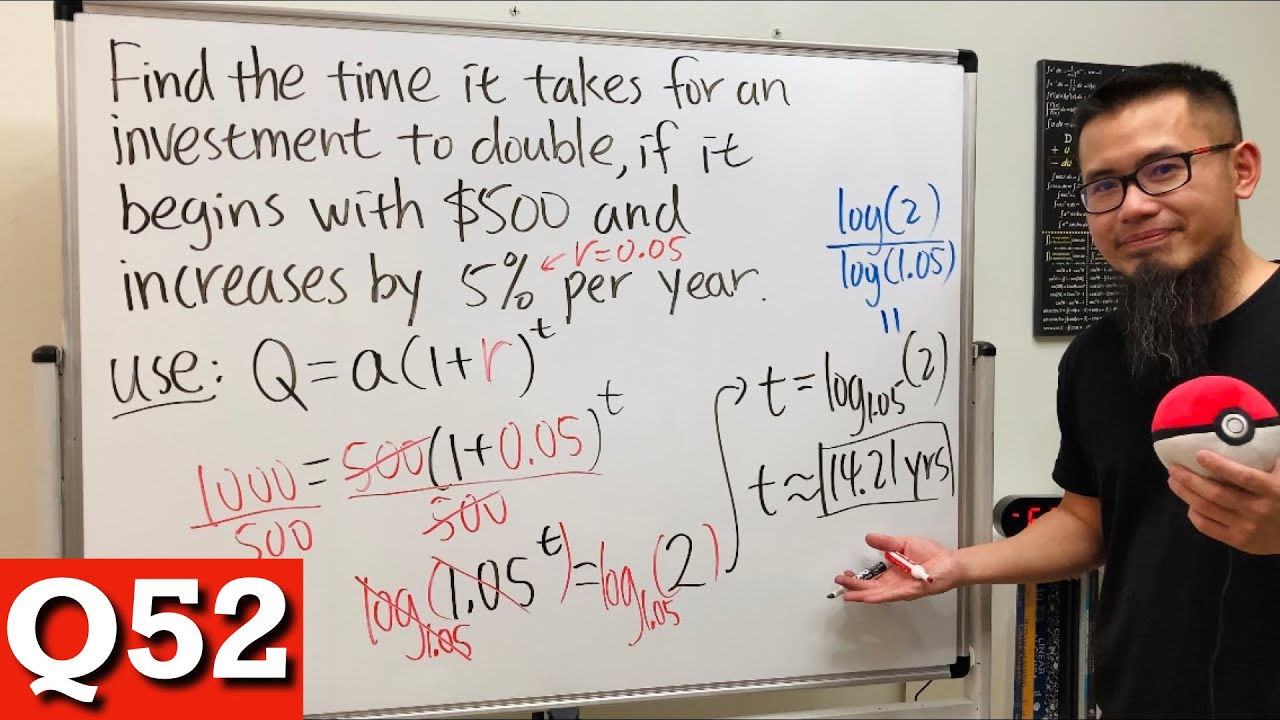 Find the time it takes for an
investment to double, if it
begins with $500 and
increases by 5% per year.
← r=0.05
use: Q=a(1+r)^t
1000/500 = 500(1+0.05)^t/500
log_1.05(1.05^t)=log_1.05(2)
log(2)/log(1.05)
=
t=log_1.05(2)
t≈14.21 yrs
Q52